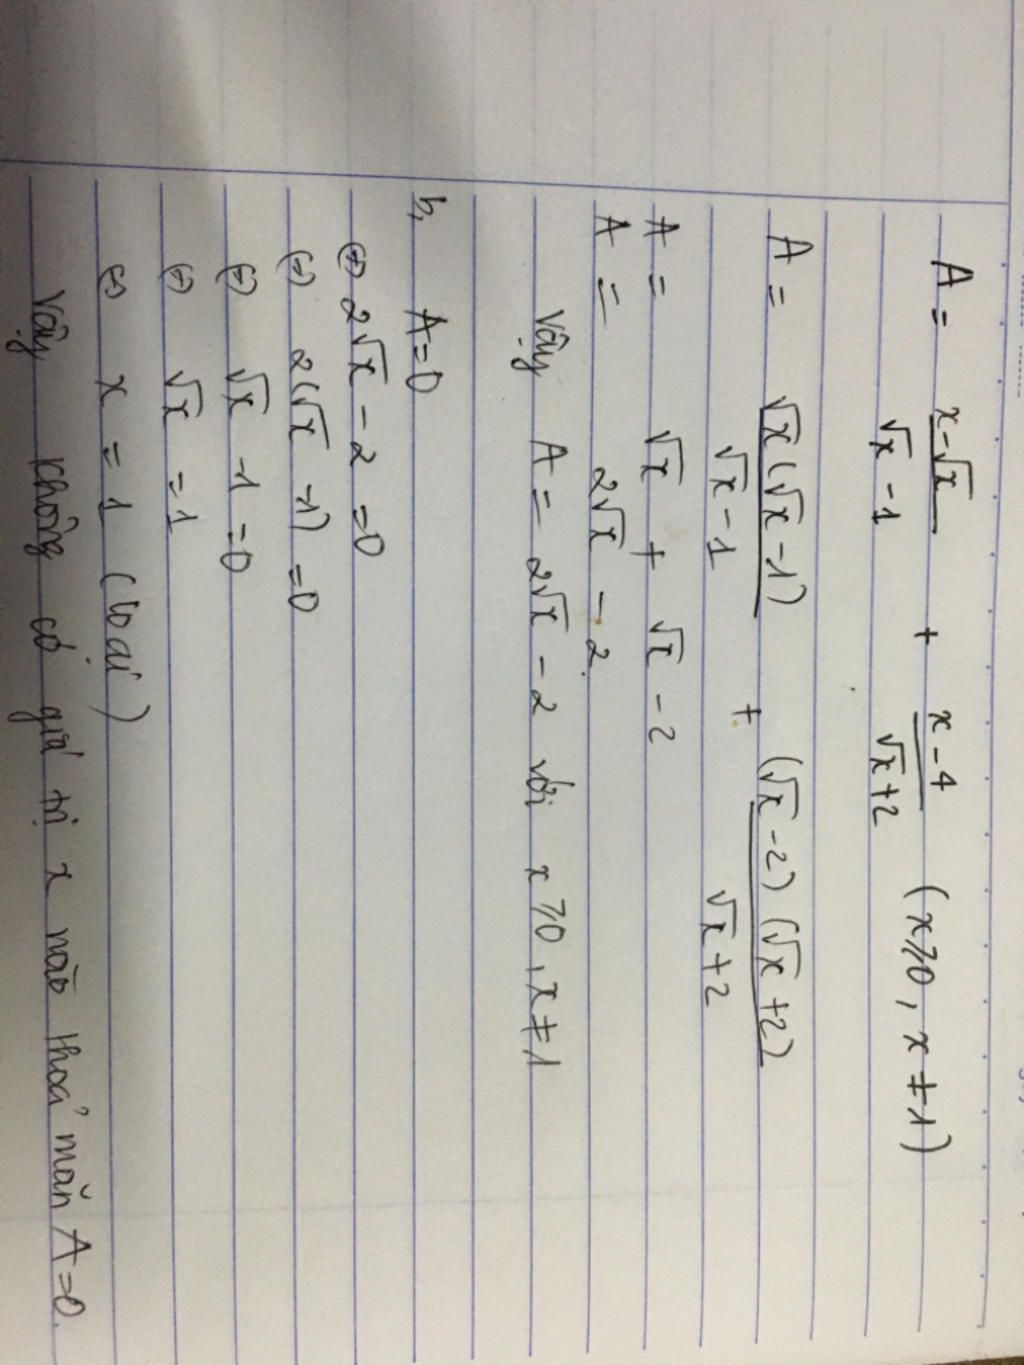 A = x-√x / √x -1 + x-4 / √x+2 (x≥0, x≠1)
A = √x(√x -1) / √x-1 + (√x-2)(√x+2) / √x+2
A = √x + √x -2
A = 2√x - 2
Vậy A = 2√x - 2 với x≥0, x≠1
b, A=0
⇔ 2√x - 2 =0
⇔ 2(√x -1) =0
⇔ √x -1 =0
⇔ √x =1
⇔ x = 1 (loại)
Vậy không có giá trị x nào thoả mãn A=0.